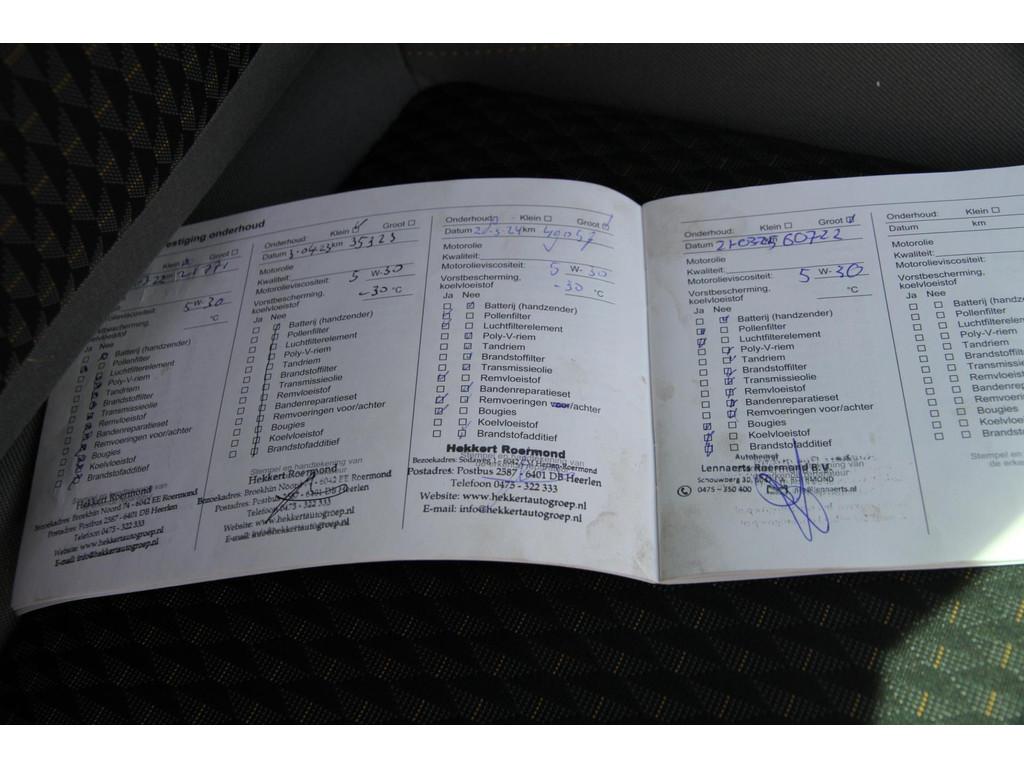 estiging onderhoud
Groot
W-30
°C
Vorstbescherming,
koelvloeistof
Ja Nee
Batterij (handzender)
Pollenfilter
Luchtfilterelement
Poly-V-riem
Tandriem
Brandstoffilter
Transmissieolie
Remvloeistof
Bandenreparatieset
Remvoeringen voor/achter
Bougies
Koelvloeistof
Brandstofadditief
Hekkert Roermond
Bezoekadres: Broekhin Noord 74 - 6042 EE Roermond
Postadres: Postbus 2587 - 6401 DB Heerlen
Telefoon 0475 - 322 333
Website: www.hekkertautogroep.nl
E-mail: info@hekkertautogroep.nl
Onderhoud: Klein Groot
Datum 3-04-23 km 35323
Motorolie
Kwaliteit:
Motorolieviscositeit: 5 W-30
Vorstbescherming, koelvloeistof -30 °C
Ja Nee
Batterij (handzender)
Pollenfilter
Luchtfilterelement
Poly-V-riem
Tandriem
Brandstoffilter
Transmissieolie
Remvloeistof
Bandenreparatieset
Remvoeringen voor/achter
Bougies
Koelvloeistof
Brandstofadditief
Stempel en handtekening van
Hekkert Roermond
Bezoekadres: Broekhin Noord
6042 EE Roermond
6401 DB Heerlen
Telefoon 0475 - 322 333
Website: www.hekkertautogroep.nl
E-mail: info@hekkertautogroep.nl
Onderhoud: Klein Groot
Datum km
Motorolie
Kwaliteit:
Motorolieviscositeit: 5 W-30
Vorstbescherming,
koelvloeistof -30 °C
Ja Nee
Batterij (handzender)
Pollenfilter
Luchtfilterelement
Poly-V-riem
Tandriem
Brandstoffilter
Transmissieolie
Remvloeistof
Bandenreparatieset
Remvoeringen voor/achter
Bougies
Koelvloeistof
Brandstofadditief
Hekkert Roermond
Postadres: Postbus 2587 - 6401 DB Heerlen
Telefoon 0475 - 322 333
Website: www.hekkertautogroep.nl
E-mail: info@hekkertautogroep.nl
Onderhoud: Klein Groot
Datum 60722
Motorolie
Kwaliteit:
Motorolieviscositeit: 5 W-30
Vorstbescherming,
koelvloeistof °C
Ja Nee
Batterij (handzender)
Pollenfilter
Luchtfilterelement
Poly-V-riem
Tandriem
Brandstoffilter
Transmissieolie
Remvloeistof
Bandenreparatieset
Remvoeringen voor/achter
Bougies
Koelvloeistof
Brandstofadditief
Autobedrijf
Lennaerts Roermond B.V.
Schouwberg 30,
0475 - 350 400
Onderhoud: Klein
Datum km
Motorolie
Kwaliteit:
Motorolieviscositeit:
Vorstbescherming,
koelvloeistof
Ja Nee
Batterij (handze
Pollenfilter
Luchtfiltereleme
Poly-V-riem
Tandriem
Brandstoffilte
Transmissi
Remvloeist
Bandenrep
Remvoerin
Bougies
Koelvloeis
Brandsto
Stempel en
de erke